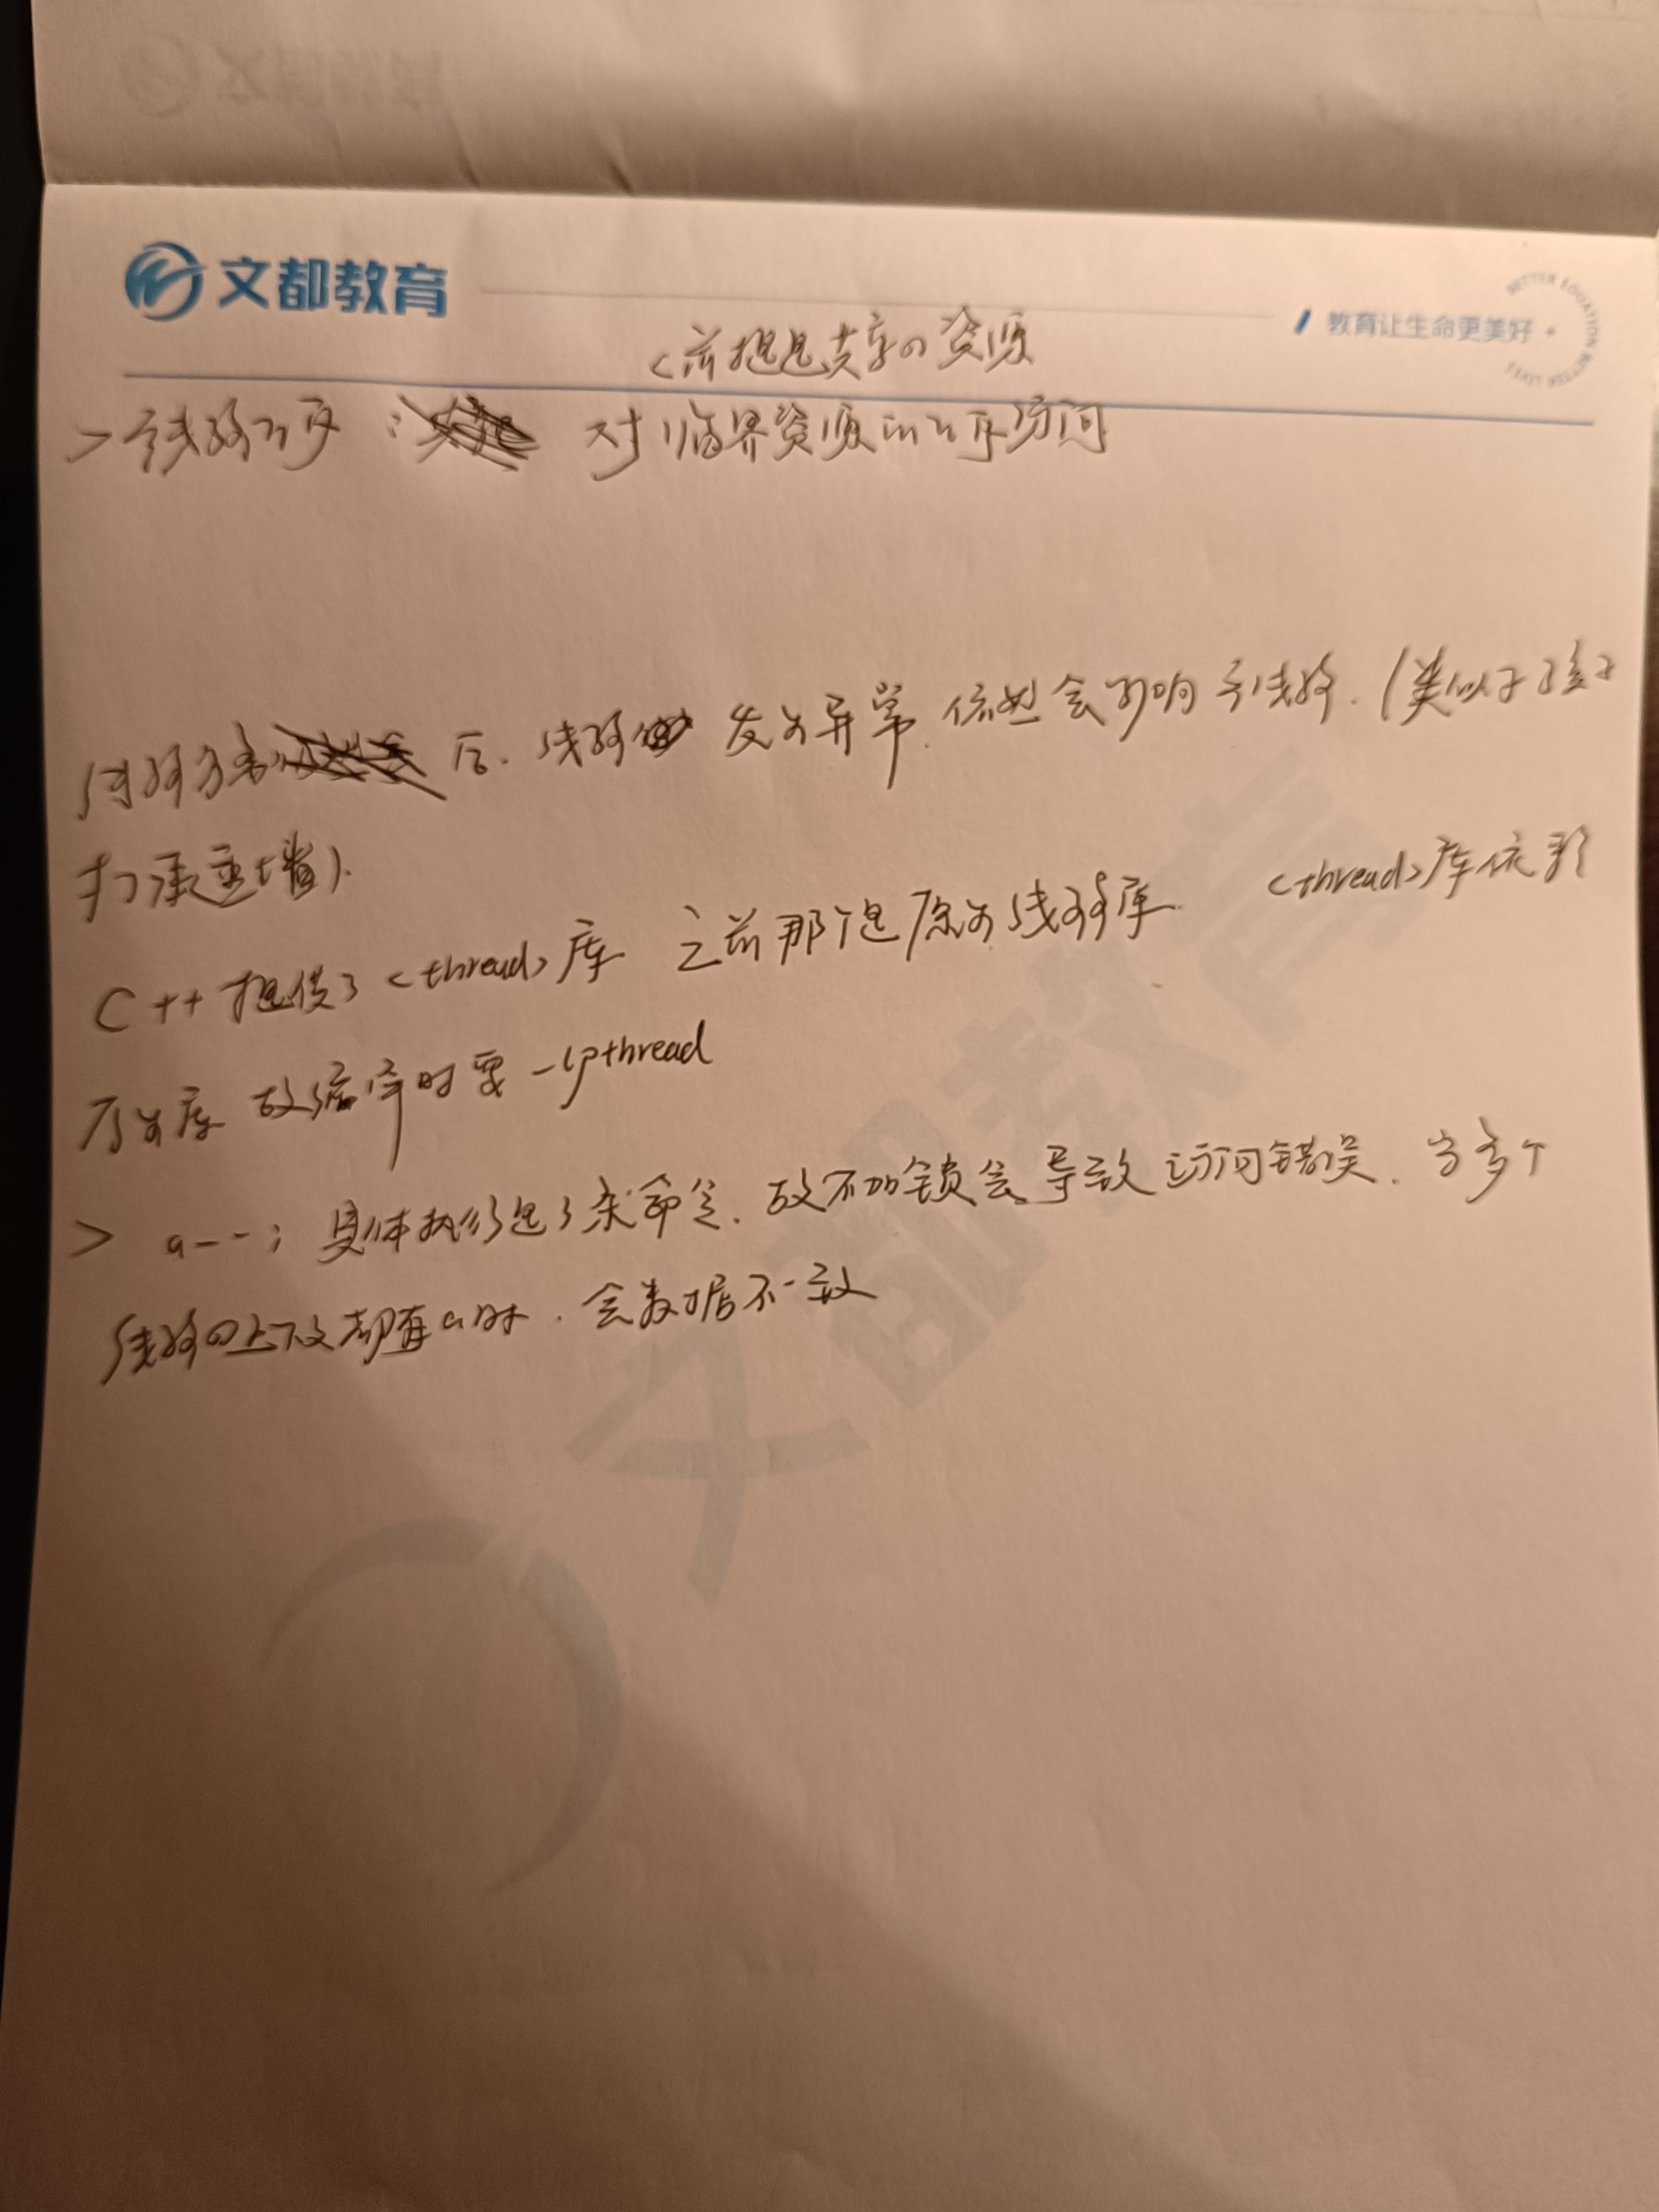 文都教育
教育让生命更美好
BETTER EDUCATION BETTER LIVES
<前提是共享的资源
>线程互斥: 对临界资源的互斥访问
线程分离后. 线程发生异常. 依然会影响主线程. (类似于孩子
打承重墙).
C++提供了<thread>库 之前那个是原生线程库. <thread>库依赖
原生库 故编译时要-lpthread
> a--; 具体执行是3条命令. 故不加锁会导致访问错误. 当多个
线程の上下文都有a时. 会数据不一致
文都教育